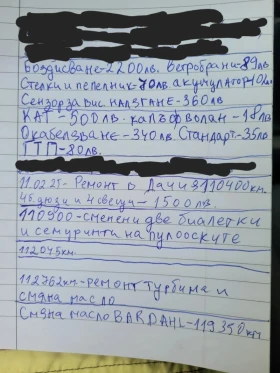 Боздисване-2200лв. ветробрани-89лв
Стелки и пепелник-70лв акумулатор-102лв
Сензор за вис. налягане-360лв
КАТ-500лв. калъф волан-18лв
Окабелзване-340лв. Стандарт-35лв.
ГТП-80лв.
11.02.25-Ремонт в Дачи 3110400км.
4бр дюзи и 4 свещи-1500лв.
110900-сменени две биалетки
и семуринги на пулооските
112045км.
112762км.-ремонт турбина и
смяна масло
Смяна масло BARDAHL-119350км